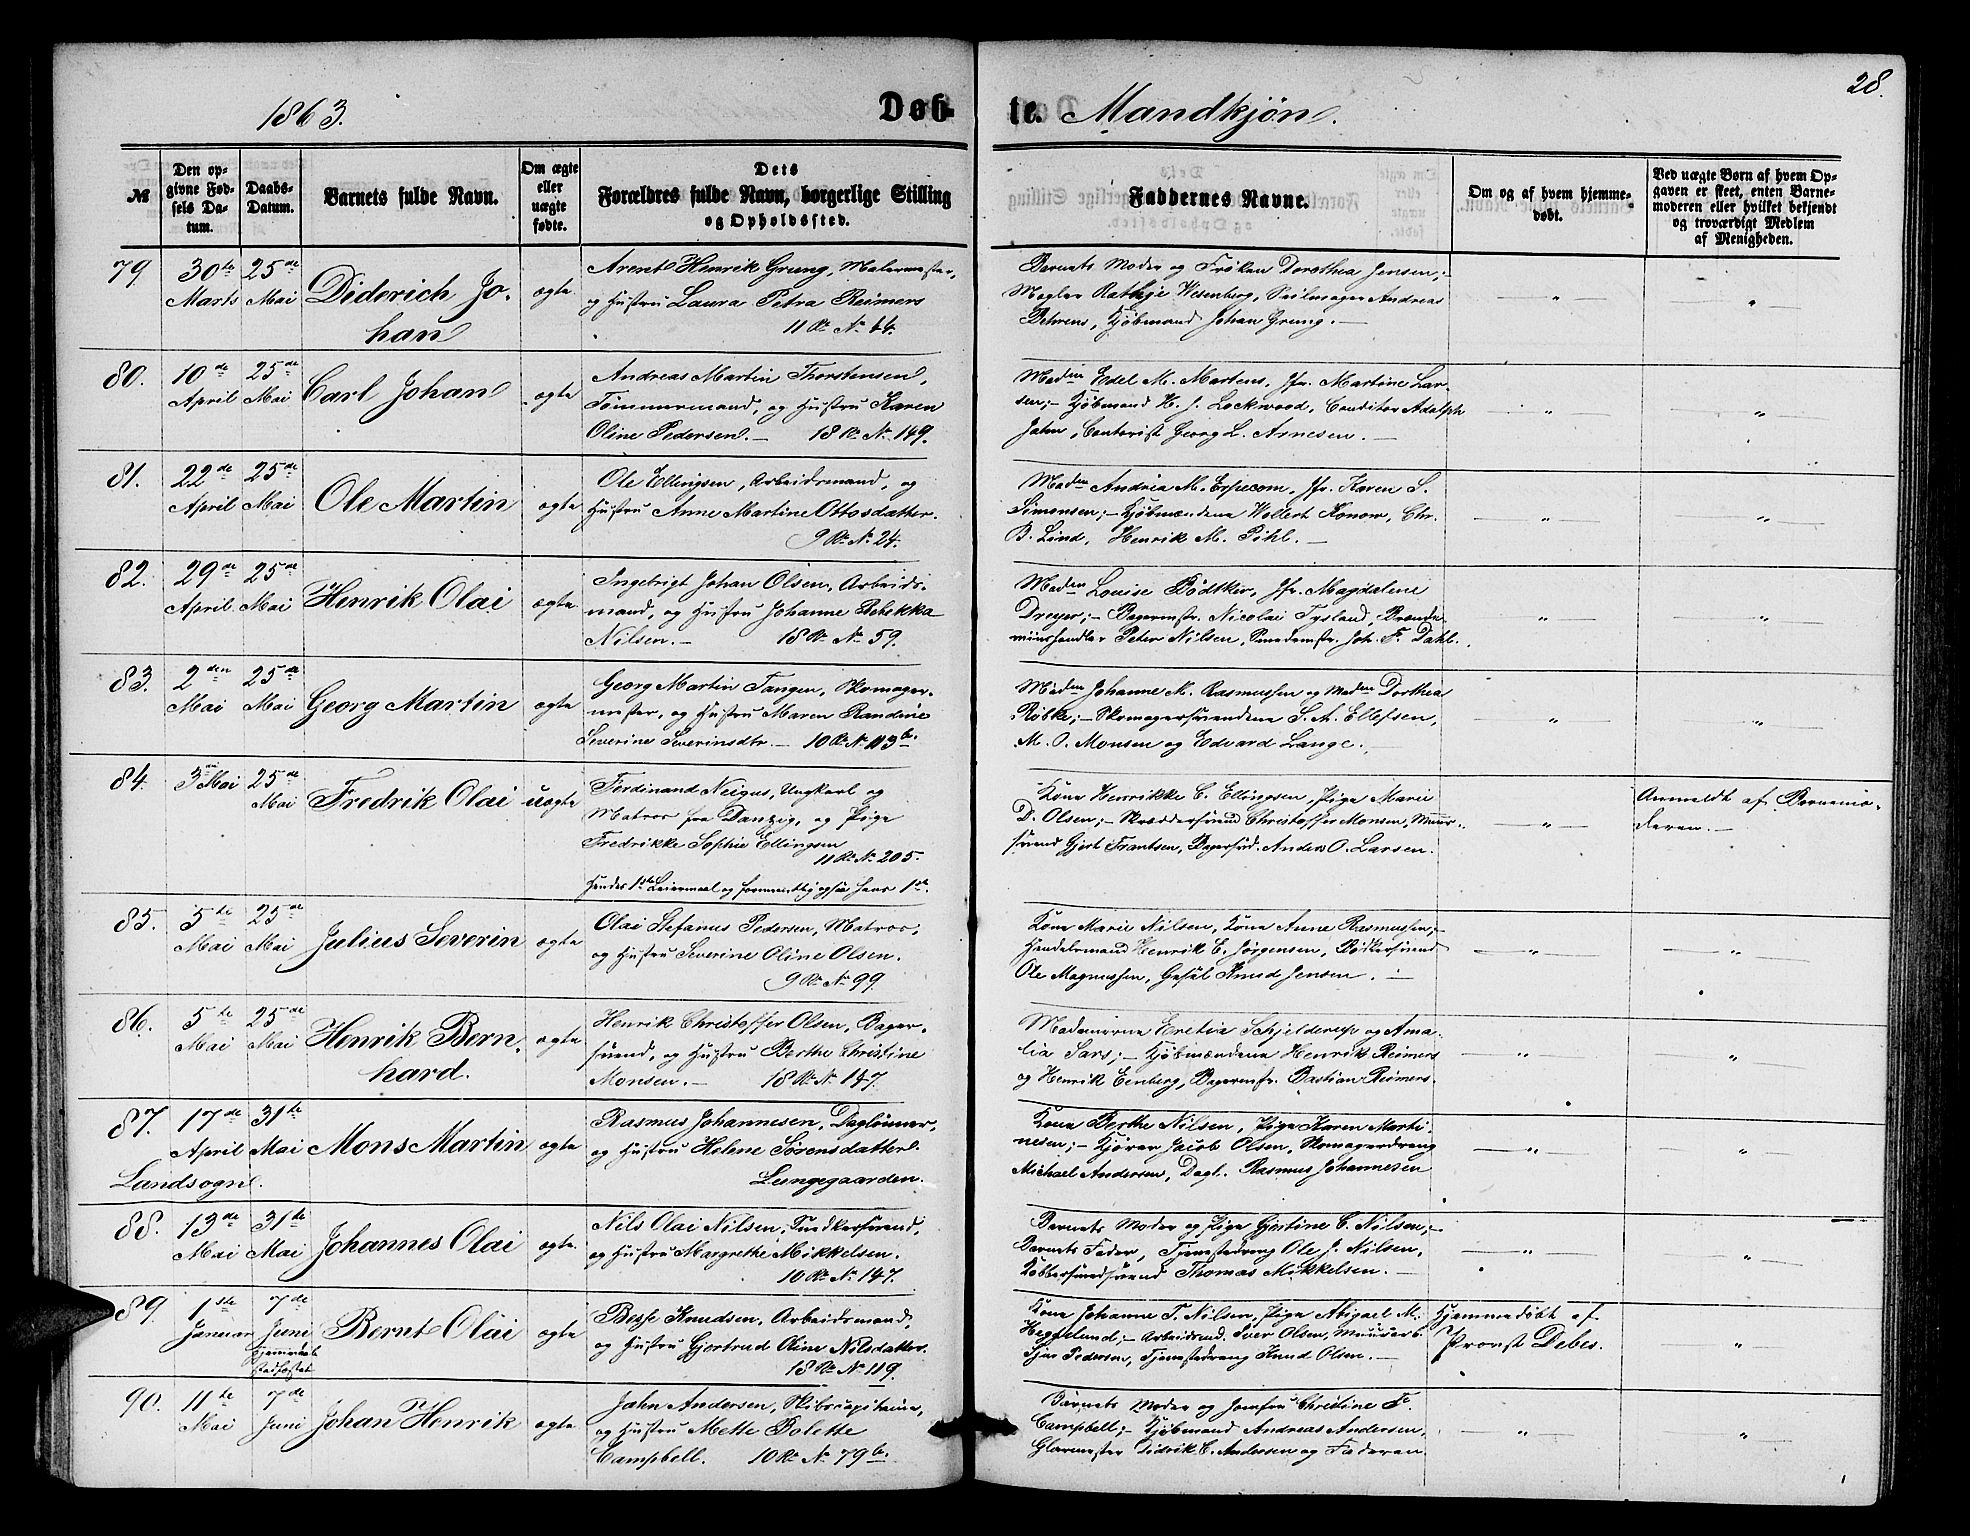 28.
1863.
Døb-
te. Mandkjøn.
№
Den op-
givne Fød-
sels Da-
tum.
Daabs-
Datum.
Barnets fulde Navn.
Om ægte
eller
uægte
fødte.
Dets
Forældres fulde Navn, borgerlige Stilling
og Opholdssted.
Faddernes Navne.
Om og af hvem hjemme-
døbt.
Ved uægte Børn af hvem Op-
gaven er skeet, enten Barne-
moderen eller hvilket bekjendt
og troværdigt Medlem
af Menigheden.
79. 30te Marts 25de Mai Diderich Jo-
han ægte
Arent Henrik Grung, Malermester,
og Hustru Laura Petra Reimers
11 R. No 44.
Barnets Moder og Frøken Dorothea Jensen;-
Mægler Rathje Wesenberg, Seilmager Andreas
Behrens, Kjøbmand Johan Grung.-
80. 10de April 25de Mai Carl Johan ægte
Andreas Martin Thorstensen,
Tømmermand, og Hustru Karen
Oline Pedersen.- 18 R. No 149.
Madm Edel M. Martens, Jfr. Martine Lar-
sen;- Kjøbmand H. J. Lockwood, Conditor Adolph
Jahn, Contorist Georg L. Arnesen.-
81. 22de April 25de Mai Ole Martin ægte
Ole Ellingsen, Arbeidsmand, og
Hustru Anne Martine Ottosdatter.
9 R. No 24.
Madm Andrea M. Erpecom, Jfr. Karen S.
Simonsen;- Kjøbmændene Wollert Konow, Chr.
B. Lind, Henrik M. Pihl.-
82. 29de April. 25de Mai Henrik Olai ægte
Ingebrigt Johan Olsen, Arbeids-
mand, og Hustru Johanne Rebekka
Nilsen.- 18 R. No 59.
Madm Louise Bødtker, Jfr. Magdalene
Dreyer;- Bagermstr. Nicolai Tysland, Brænde-
viinshandler Peter Nilsen, Joh. F. Dahl.
83. 2den Mai 25de Mai Georg Martin ægte
Georg Martin Tangen, Skomager-
mester, og Hustru Maren Randine
Severine Severinsdtr.- 10 R. No 113b.
Madm Johanne M. Rasmussen og Madm Dorthea
Røbke;- Skomagersvendene S. A. Ellefsen,
M. O. Monsen og Edvard Lange.
84. 3die Mai 25de Mai Fredrik Olai uægte
Ferdinand Neigus, Ungkarl og
Matros fra Danzig, og Pige
Fredrikke Sophie Ellingsen
11 R. No 205.
Hendes 1ste Leiermaal og formentlig ogsaa hans 1ste.
Kone Henrikke C. Ellingsen, Pige Marie
D. Olsen;- Skræddersvend Christoffer Monsen, Muur-
svend Gjert Frantsen, Bagersvd. Anders O. Larsen.
Anmeldt af Barnemo-
deren.-
85. 5te Mai 25de Mai Julius Severin ægte
Olai Stefanus Pedersen, Matros,
og Hustru Severine Oline Olsen.
9 R. No 99.
Kone Marie Nilsen, Kone Anne Rasmussen;-
Handelsmand Henrik E. Jørgensen, Bødkersvend
Ole Magnussen, Gesel Knud Jensen.-
86. 5te Mai 25de Mai Henrik Bern-
hard. ægte
Henrik Christoffer Olsen, Bager-
svend, og Hustru Berthe Christine
Monsen.- 18 R. No 147.
Madamerne Eretia Schjelderup og Ama-
lia Sars;- Kjøbmændene Henrik Reimers
og Henrik Eenberg, Bagermstr. Bastian Reimers.
87. 17de April 31te Mai Mons Martin ægte
Landsogn.
Rasmus Johannesen, Daglønner,
og Hustru Helene Sørensdatter.
Lungegaarden.
Kone Berthe Nilsen, Pige Karen Marti-
nesen;- Kjører Jacob Olsen, Skomagerdreng
Michael Andersen, Dagl. Rasmus Johannesen
88. 13de Mai 31te Mai Johannes Olai ægte.
Nils Olai Nilsen, Snedkersvend,
og Hustru Margrethe Mikkelsen.
10 R. No 147.
Barnets Moder og Pige Gjertine C. Nilsen;-
Barnets Fader, Tjenestedreng Ole J. Nilsen,
Kobbersmedsvend Thomas Mikkelsen.-
89. 1ste Januar 7de Juni Bernt Olai ægte
hjemmedaab
stadfæstet
Besse Knudsen, Arbeidsmand,
og Hustru Gjertrud Oline Nilsdatter.
18 R. No 119.
Kone Johanne T. Nilsen, Pige Abigael M.
Heggelund;- Arbeidsmd. Iver Olsen,
Sjur Pedersen, Tjenestedreng Knud Olsen.-
Hjemmedøbt af
Provst Debes.
90. 11te Mai 7de Juni Johan Henrik ægte
Jahn Andersen, Skibscapitaine,
og Hustru Mette Bolette
Campbell. 10 R. No 79b.
Barnets Moder og Jomfru Christine F.
Campbell;- Kjøbmand Andreas Andersen,
Glarmester Didrik C. Andersen og Faderen